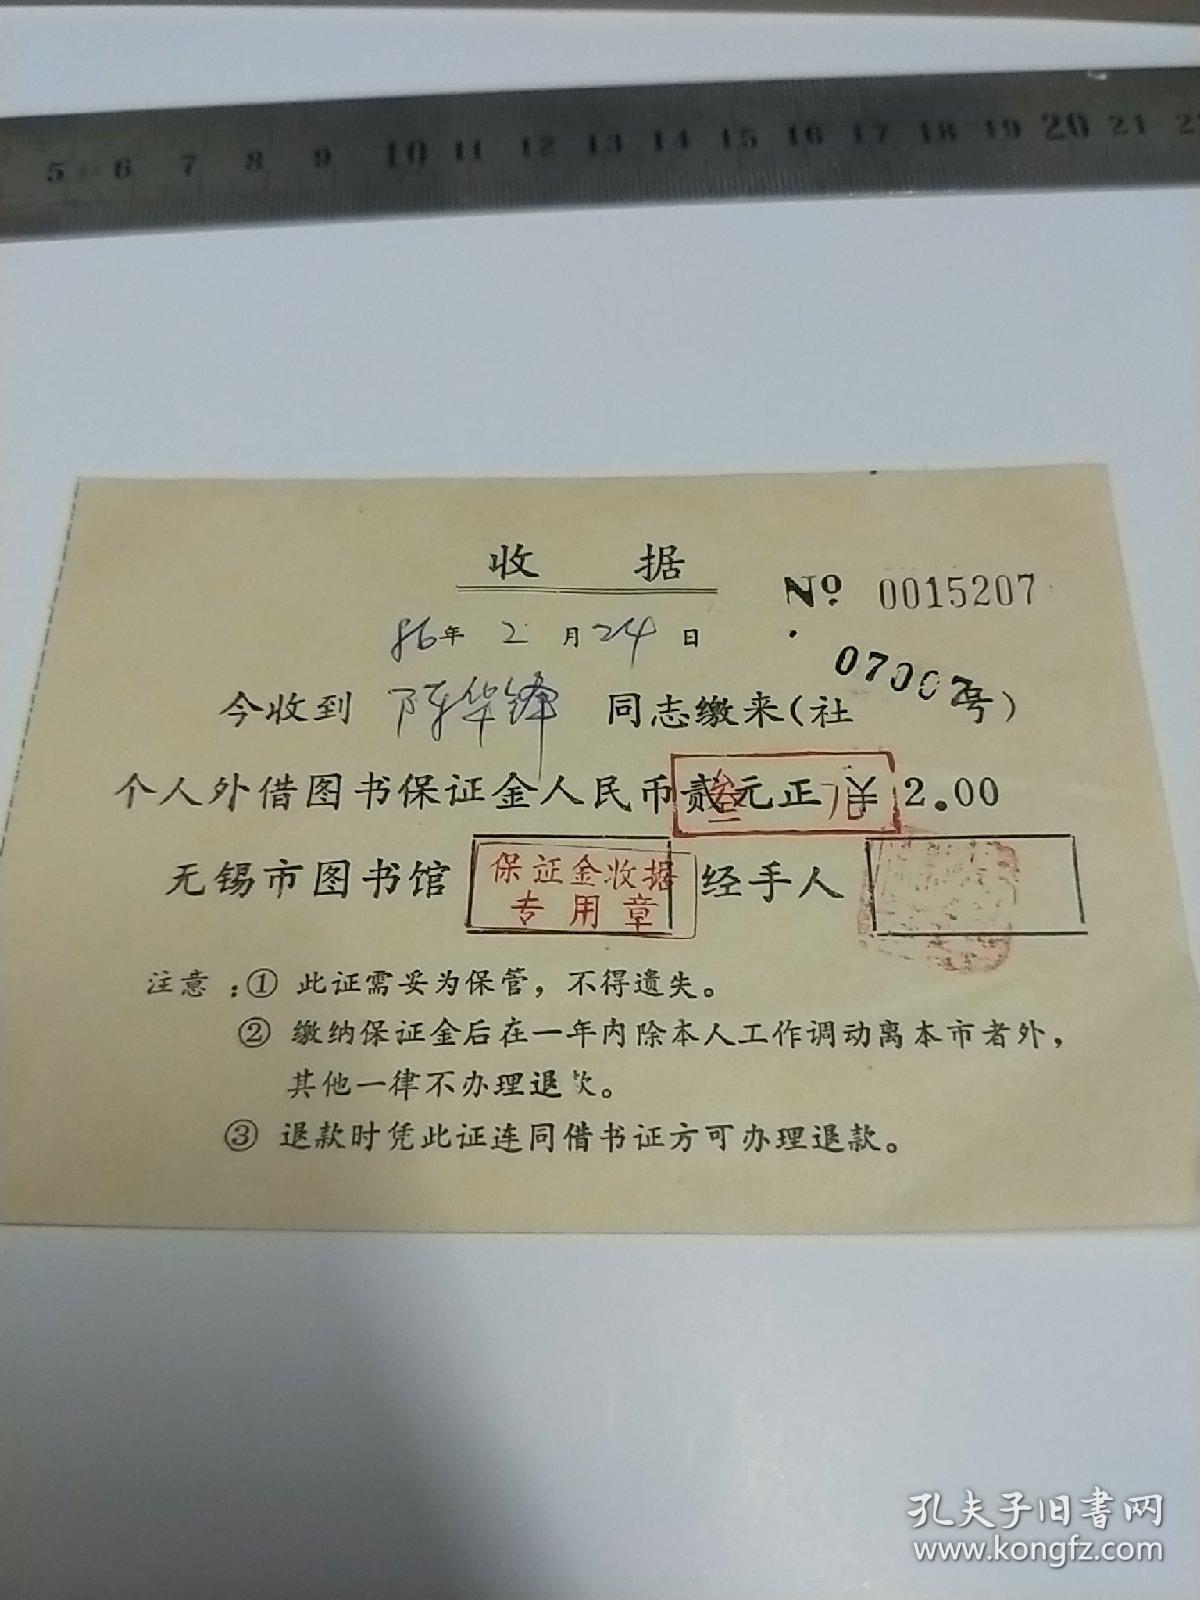 5 6 7 8 9 10 11 12 13 14 15 16 17 18 19 20 21 22
收 据
№ 0015207
86年 2 月 24 日
今收到 陈华锋 同志缴来(社 07007号)
个人外借图书保证金人民币贰元正 ¥ 2.00
叁 元
无锡市图书馆 保证金收据专用章 经手人
注意:① 此证需妥为保管,不得遗失。
② 缴纳保证金后在一年内除本人工作调动离本市者外,
其他一律不办理退款。
③ 退款时凭此证连同借书证方可办理退款。
孔夫子旧书网
www.kongfz.com